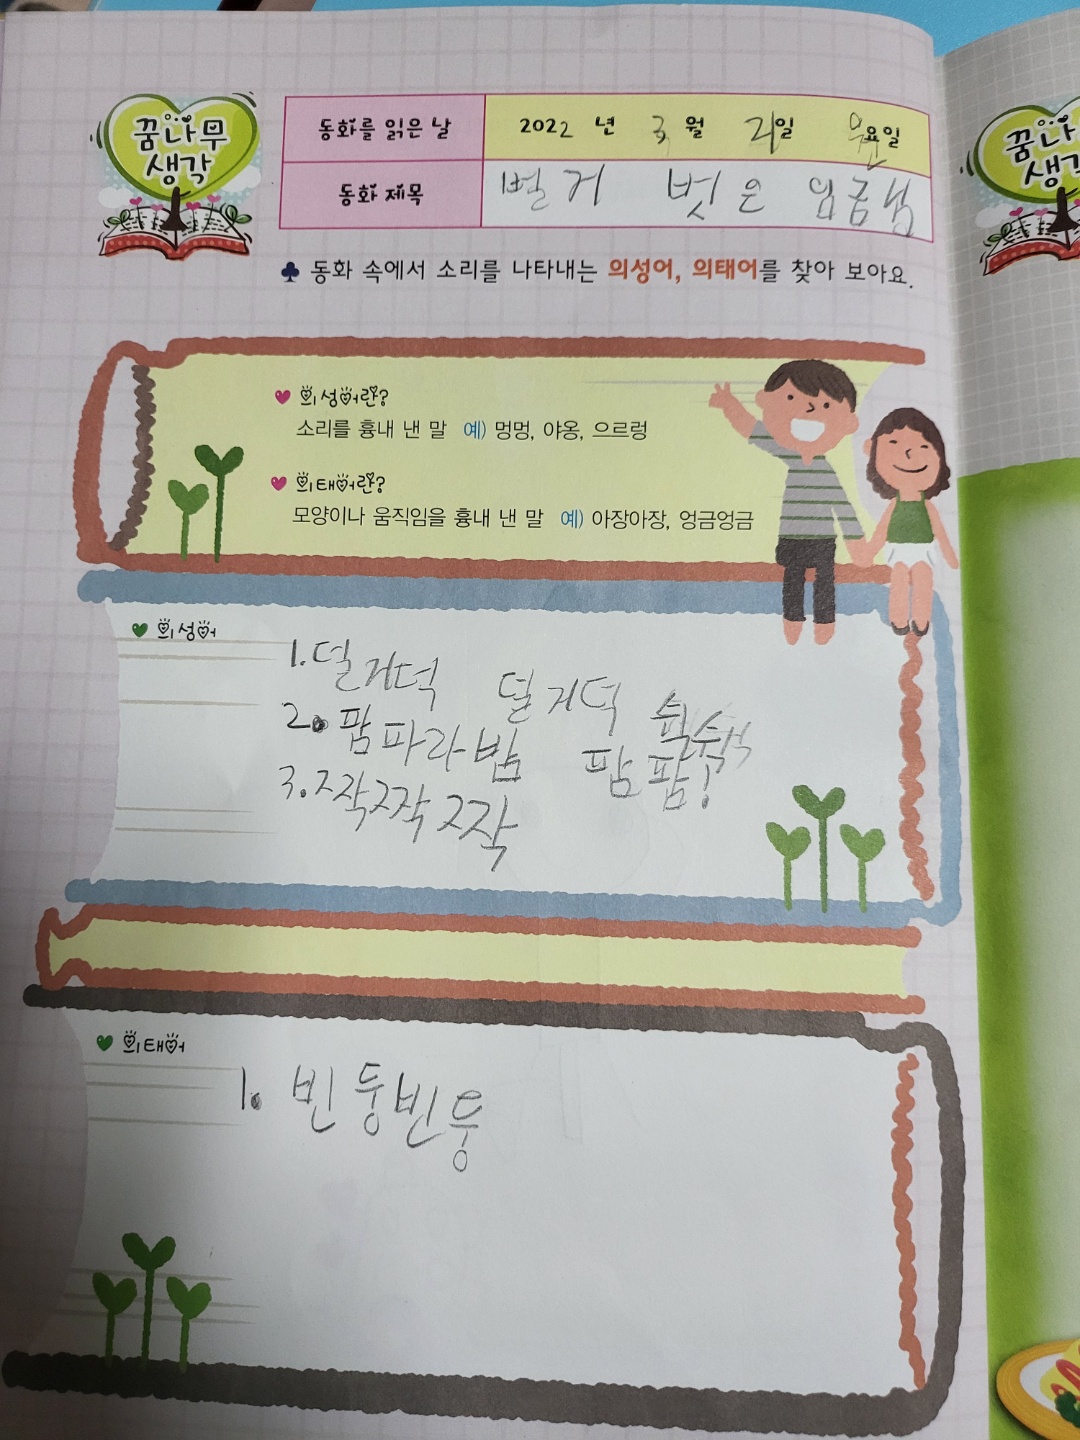 꿈나무
생각
동화를 읽은 날 2022 년 3 월 21일 요일
동화 제목 벌거 벗은 임금님
♣ 동화 속에서 소리를 나타내는 의성어, 의태어를 찾아 보아요.
의성어란?
소리를 흉내 낸 말 예) 멍멍, 야옹, 으르렁
의태어란?
모양이나 움직임을 흉내 낸 말 예) 아장아장, 엉금엉금
의성어
1. 덜거덕 덜거덕 쉭쉭
2. 팜파라밤 팜팜!
3. 짝짝 짝
의태어
1. 빈둥빈둥
꿈나
생각